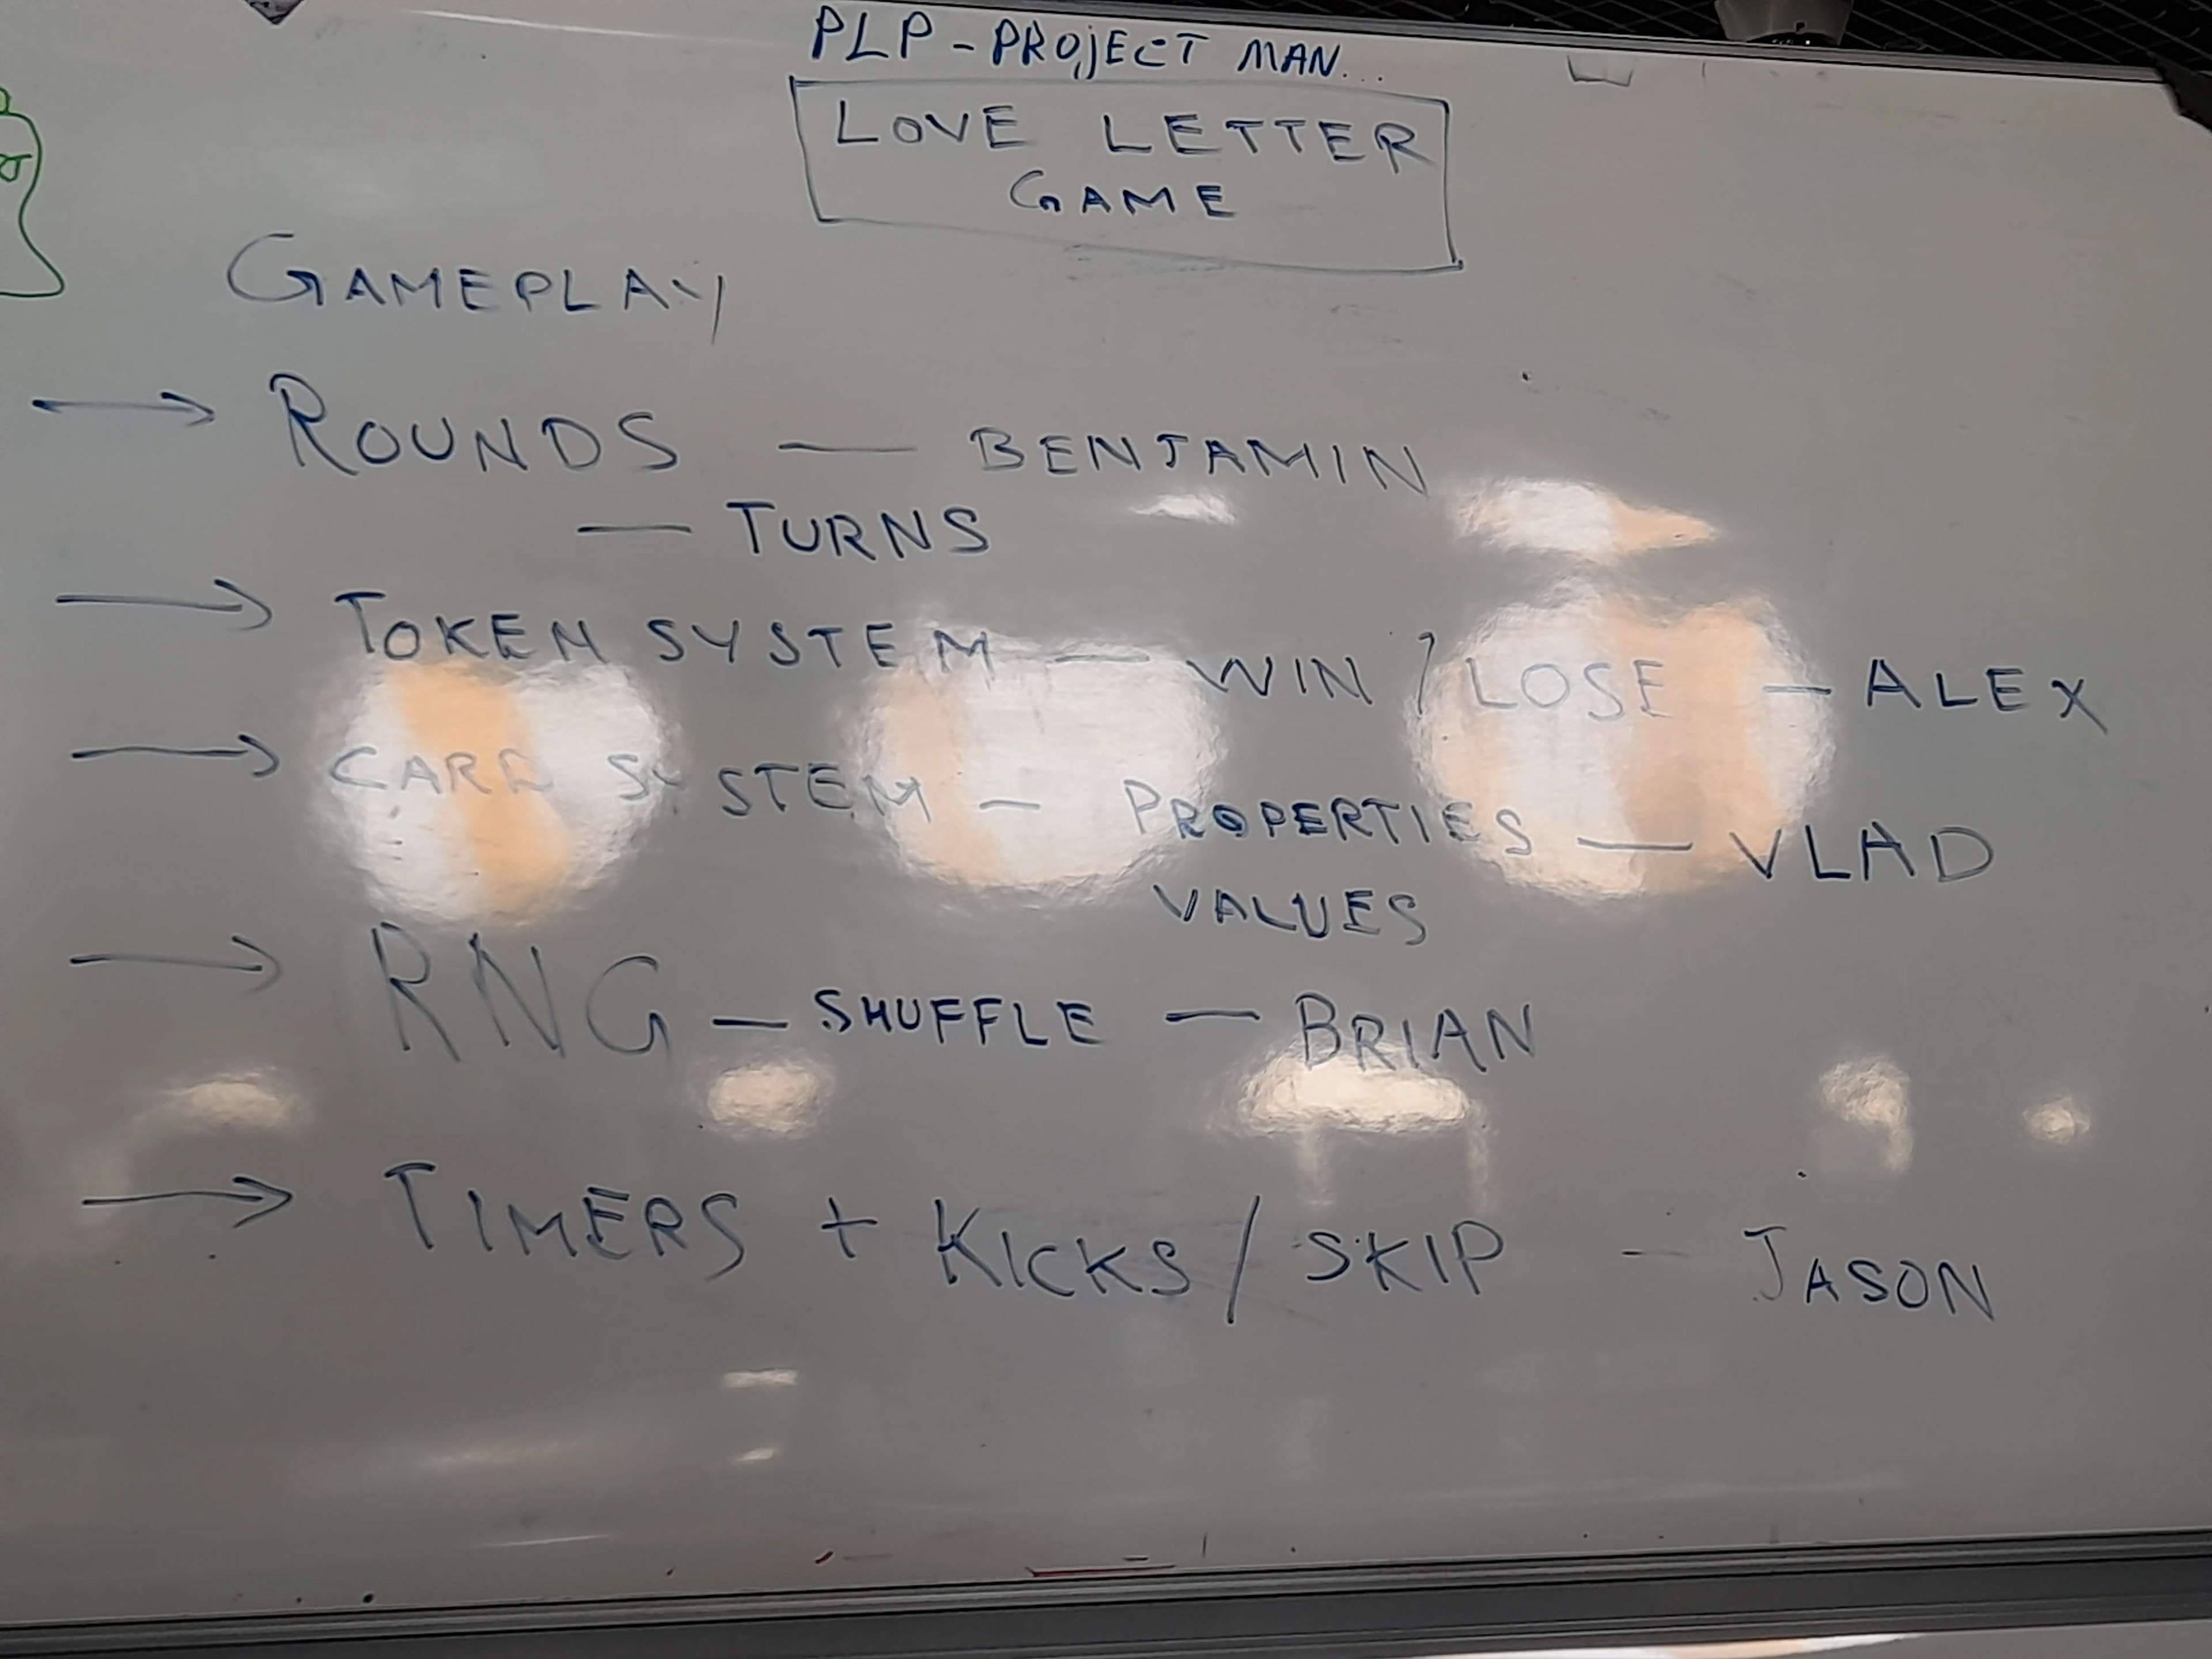 PLP - PROJECT MAN...
LOVE LETTER
GAME
GAMEPLAY
→ ROUNDS — BENJAMIN
— TURNS
→ TOKEN SYSTEM — WIN / LOSE — ALEX
→ CARD SYSTEM — PROPERTIES — VLAD
VALUES
→ RNG — SHUFFLE — BRIAN
→ TIMERS + KICKS / SKIP — JASON